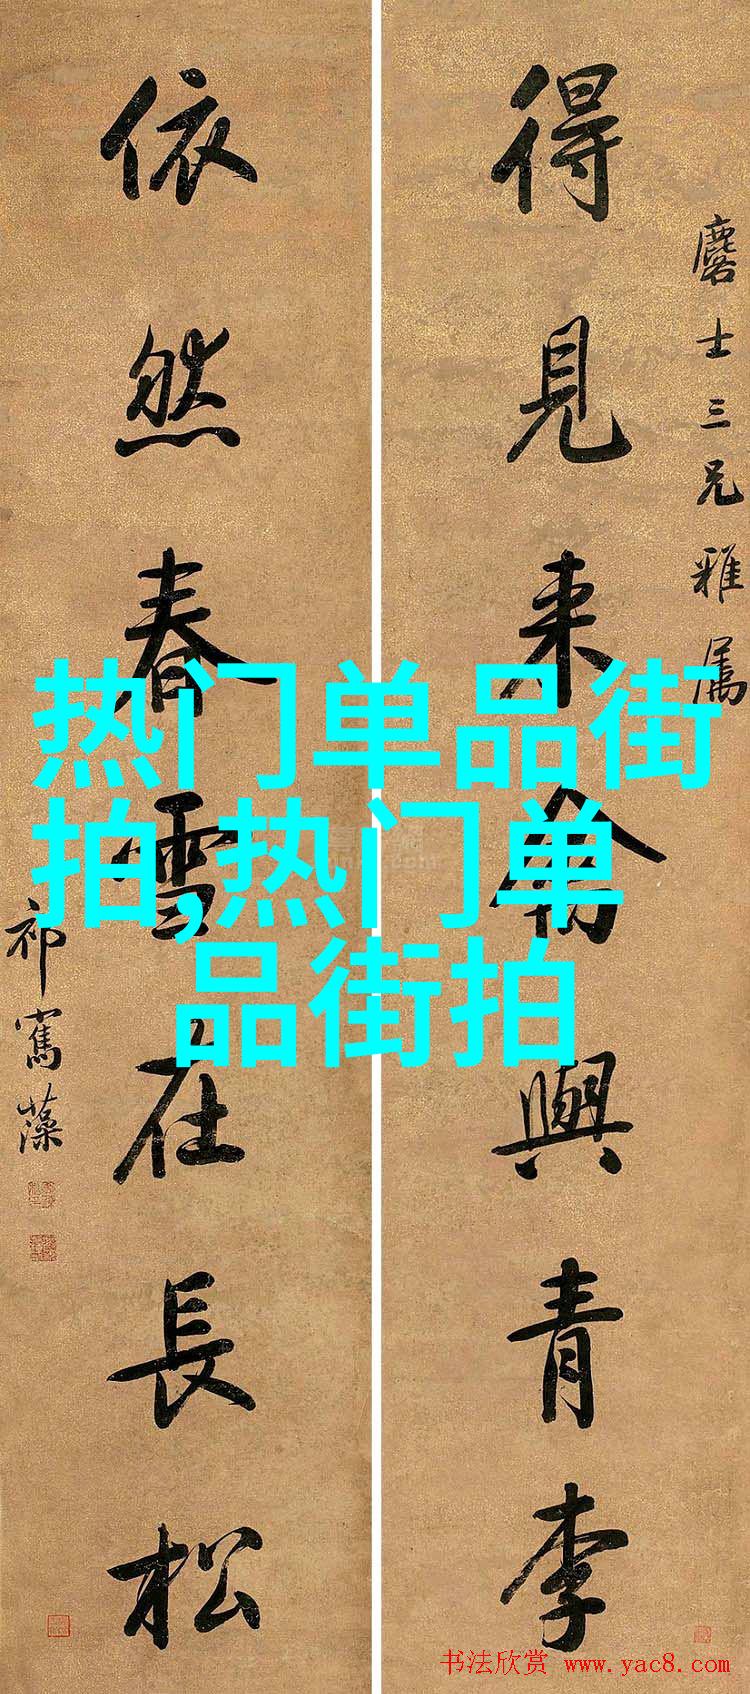 得見来禽與青李
依然春雪在長松
麐士三兄雅属
祁寯藻
热门单品街
拍,热门单
品街拍
书法欣赏 www.yac8.com